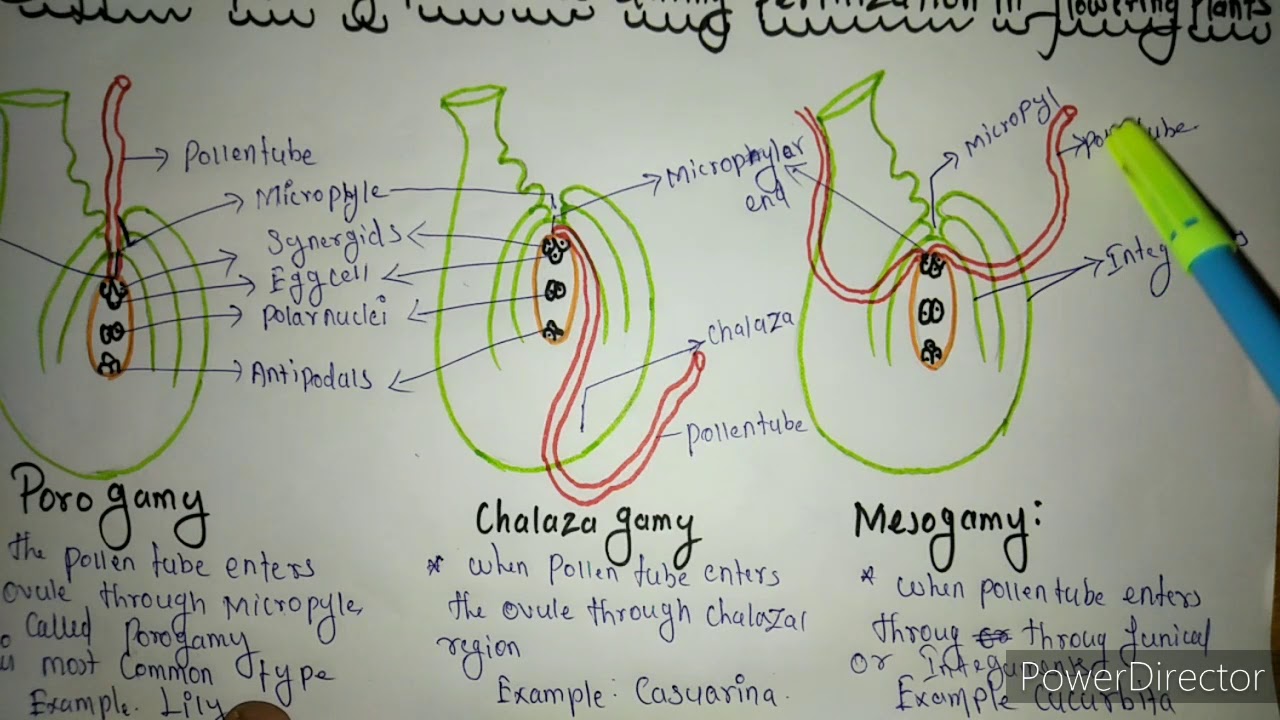 Fertilization in flowering Plants
Pollentube
Microphyle
Synergids
Eggcell
Polarnuclei
Antipodals
Microphylar
end
Chalaza
Pollentube
Micropyl
tube
Integ
Porogamy
the pollen tube enters
ovule through Micropyle
Called Porogamy
most Common type
Example. Lily
Chalaza gamy
* when Pollen tube enters
the ovule through Chalazal
region
Example: Casuarina.
Mesogamy:
* when pollentube enters
throug throug funical
or Integuments
Example Cucurbita
PowerDirector